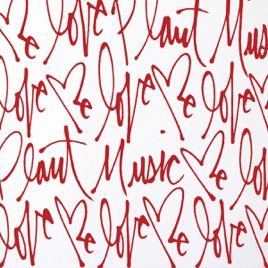 Me love Plaut Mus
love Me love Me love
Plaut Music Me
love Me love Me lov